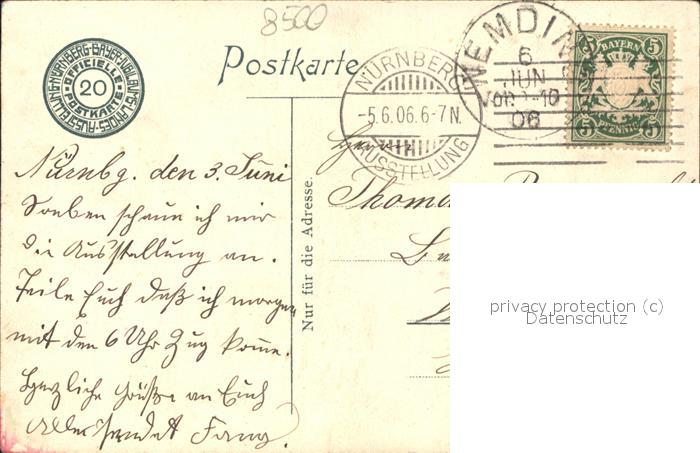 8500
NÜRNBERG·BAYER·JUBILÄUMS·LANDES-AUSSTELLUNG
OFFICIELLE
20
POSTKARTE
Postkarte
NÜRNBERG
-5.6.06.6-7N.
AUSSTELLUNG
WEMDING
6
JUN
06
BAYERN
5 5
5 PFENNIG 5
Nürnbg. den 3. Juni
Soeben schaun ich mir
die Ausstellung an.
Teile Euch daß ich morgen
mit den 6 Uhr Zug komme.
Herzliche Grüße an Euch
Alle sendet
Nur für die Adresse.
Herrn
Thom
privacy protection (c)
Datenschutz